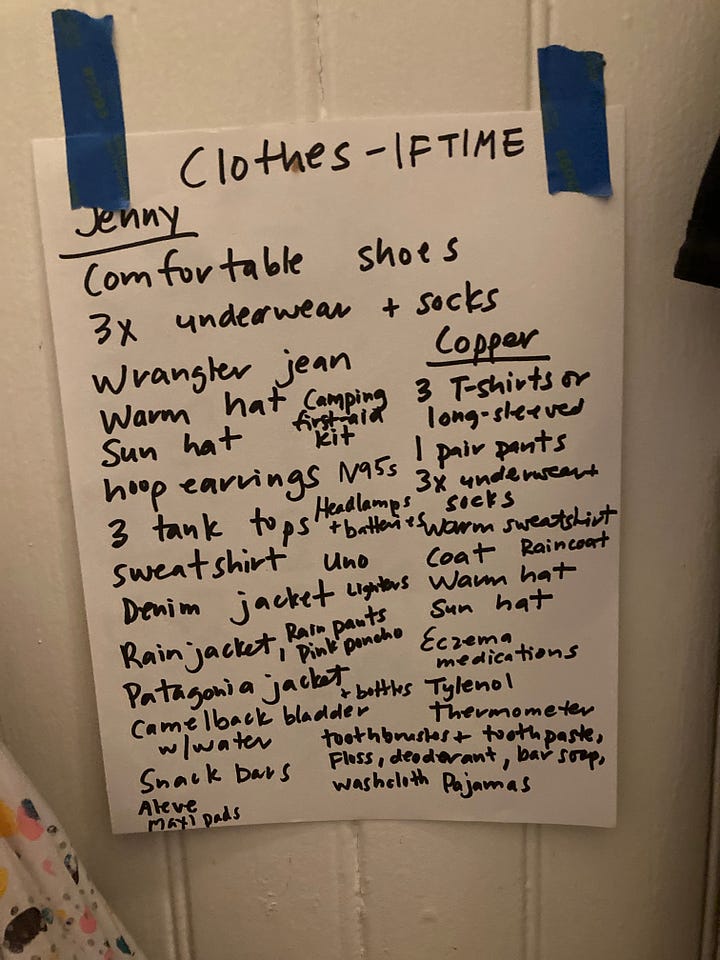 Clothes - IF TIME
Jenny
Comfortable shoes
3x underwear + socks
Wrangler jean
Warm hat
Sun hat
hoop earrings
3 tank tops
sweatshirt
Denim jacket
Rain jacket, Rain pants
, Pink poncho
Patagonia jacket
Camelback bladder
+ bottles
w/water
Snack bars
Aleve
Maxi pads
Camping
first-aid
kit
N95s
Headlamps
+ batteries
Uno
Lighters
Copper
3 T-shirts or
long-sleeved
1 pair pants
3x underwear +
socks
Warm sweatshirt
Coat Raincoat
Warm hat
Sun hat
Eczema
medications
Tylenol
Thermometer
toothbrushes + toothpaste,
Floss, deoderant, bar soap,
washcloth Pajamas